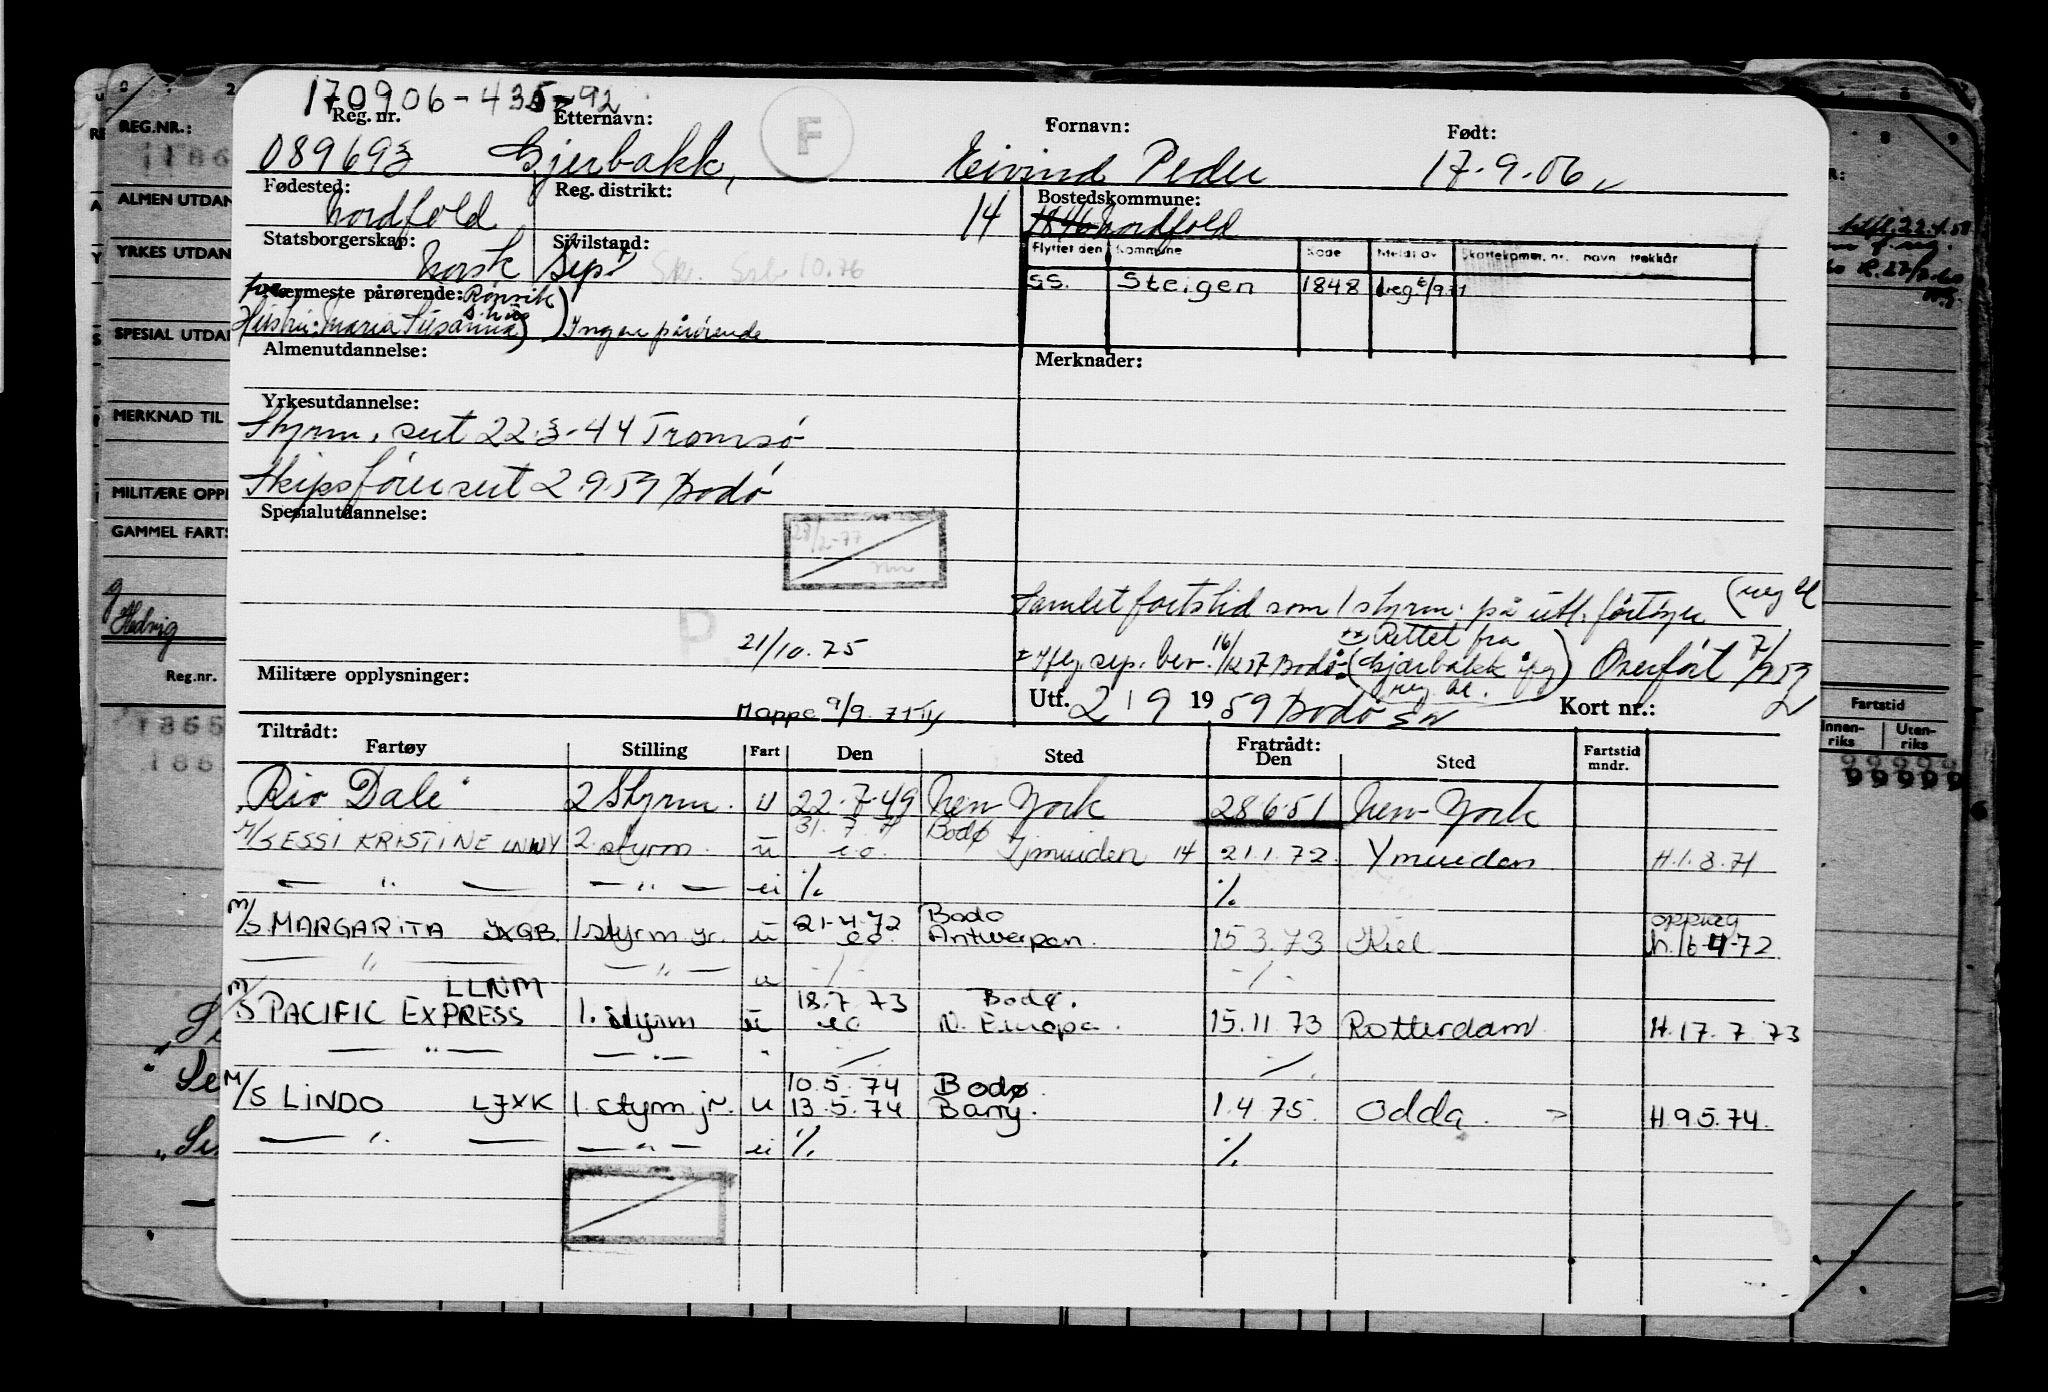 170906-435-92
Reg. nr. Etternavn: F Fornavn: Født:
089693 Gjerbakk, Eivind Peder 17-9-06
Fødested: Reg. distrikt: Bostedskommune:
Nordfold 14 1846 Nordfold
Statsborgerskap: Sivilstand: Flyttet den Kommune Kode Meldt av Skattekomm. nr. navn trekkår
Norsk Sep. 10.76
ss. Steigen 1848
Nærmeste pårørende: Rønvik
Hustru: Maria Susanna) Ingen pårørende
Almenutdannelse: Merknader:
Yrkesutdannelse:
Styrm. sert 22.3-44 Tromsø
Skipsfører sert 2.9.59 Bodø
Spesialutdannelse:
28/2-77
Samlet fartstid som 1 styrm. på utl. fartøyer
P. 21/10.75
Rettet fra
sep. bev. 16/12 57 Bodø (Gjærbakk Overført 7/9 59
Militære opplysninger:
Utf. 2 / 9 1959 Bodø Kort nr.: 2
Mappe 9/9.71 Ty
Tiltrådt: Fratrådt:
Fartøy Stilling Fart Den Sted Den Sted Fartstid mndr.
Rio Dale 2 Styrm. u 22.7.49 New York 28.6.51 New York
31.7.71 Bodø
M/S ESSI KRISTINE LNWY 2. styrm. u eo. Ijmuiden 14 21.1.72 Ymuiden H.1.8.71
— " — — " — ei ./. ./.
21-4-72 Bodo oppreg
M/S MARGARITA JXQB 1 styrm jr. u eo. Antwerpen. 15.3.73 Kiel h.16-4-72
— " — — " — u -/- -/-
LLNM 18.7.73 Bodø.
M/S PACIFIC EXPRESS 1. styrm u eo N. Europa. 15.11.73 Rotterdam H.17.7.73
— " — — " — " -/- -/.
10.5.74 Bodø.
M/S LINDO LJXK 1. styrm jr. u 13.5.74 Barry. 1.4.75. Odda H.9.5.74.
— " — — " — ei ./. ./.
REG.NR.:
1186
ALMEN UTDAN
YRKES UTDAN
SPESIAL UTDA
MERKNAD TIL
MILITÆRE OPP
GAMMEL FARTS
Hedvig
Reg.nr.
1865
186
8 9
Fartstid
Innen-riks Uten-riks
99999